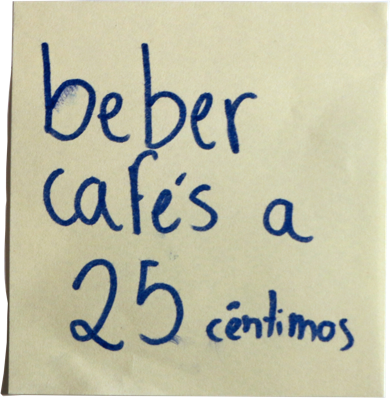 beber
cafés a
25 céntimos